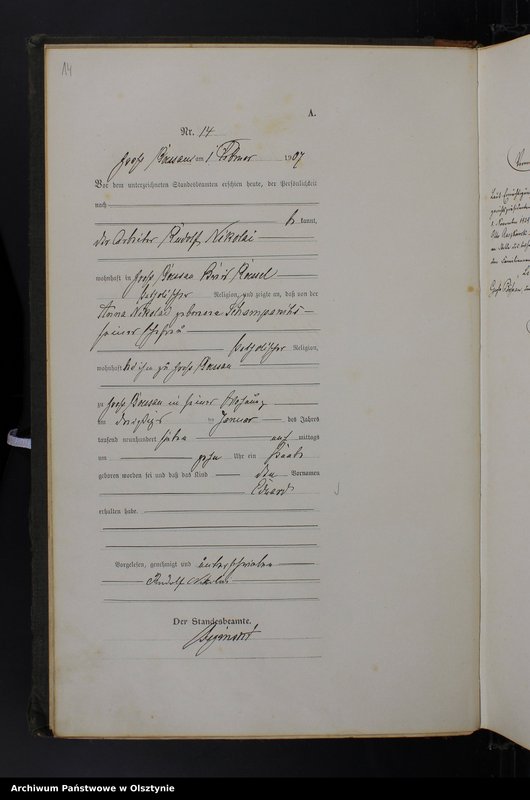 14
A.
Nr. 14
Groß Bössau am 1 Februar 1907
Vor dem unterzeichneten Standesbeamten erschien heute, der Persönlichkeit
nach
be kannt,
der Arbeiter Rudolf Nikolai
wohnhaft in Groß Bössau Kreis Rössel
katholischer Religion, und zeigte an, daß von der
Anna Nikolai geborene
seiner Ehefrau
katholischer Religion,
wohnhaft bei ihm zu Groß Bössau
zu Groß Bössau in seiner Wohnung
am dreißigsten Januar des Jahres
tausend neunhundert sieben nach mittags
um zehn Uhr ein Knabe
geboren worden sei und daß das Kind den Vornamen
Eduard
erhalten habe.
Vorgelesen, genehmigt und unterschrieben
Rudolf Nikolai
Der Standesbeamte.
Archiwum Państwowe w Olsztynie